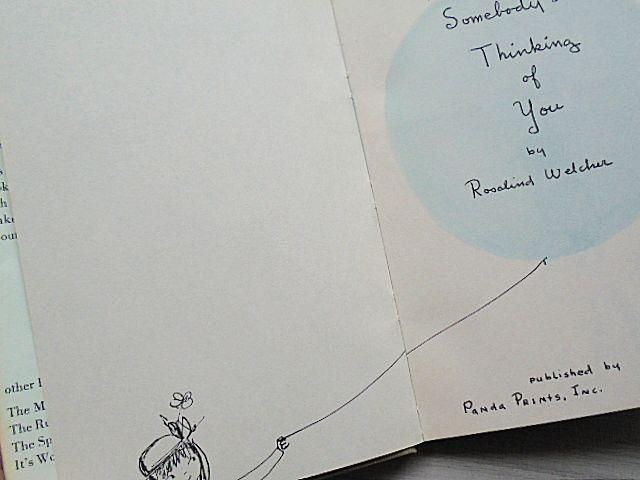 other
The
The
The
It's
Somebody's
Thinking
of
You
by
Rosalind Welcher
published by
Panda Prints, Inc.